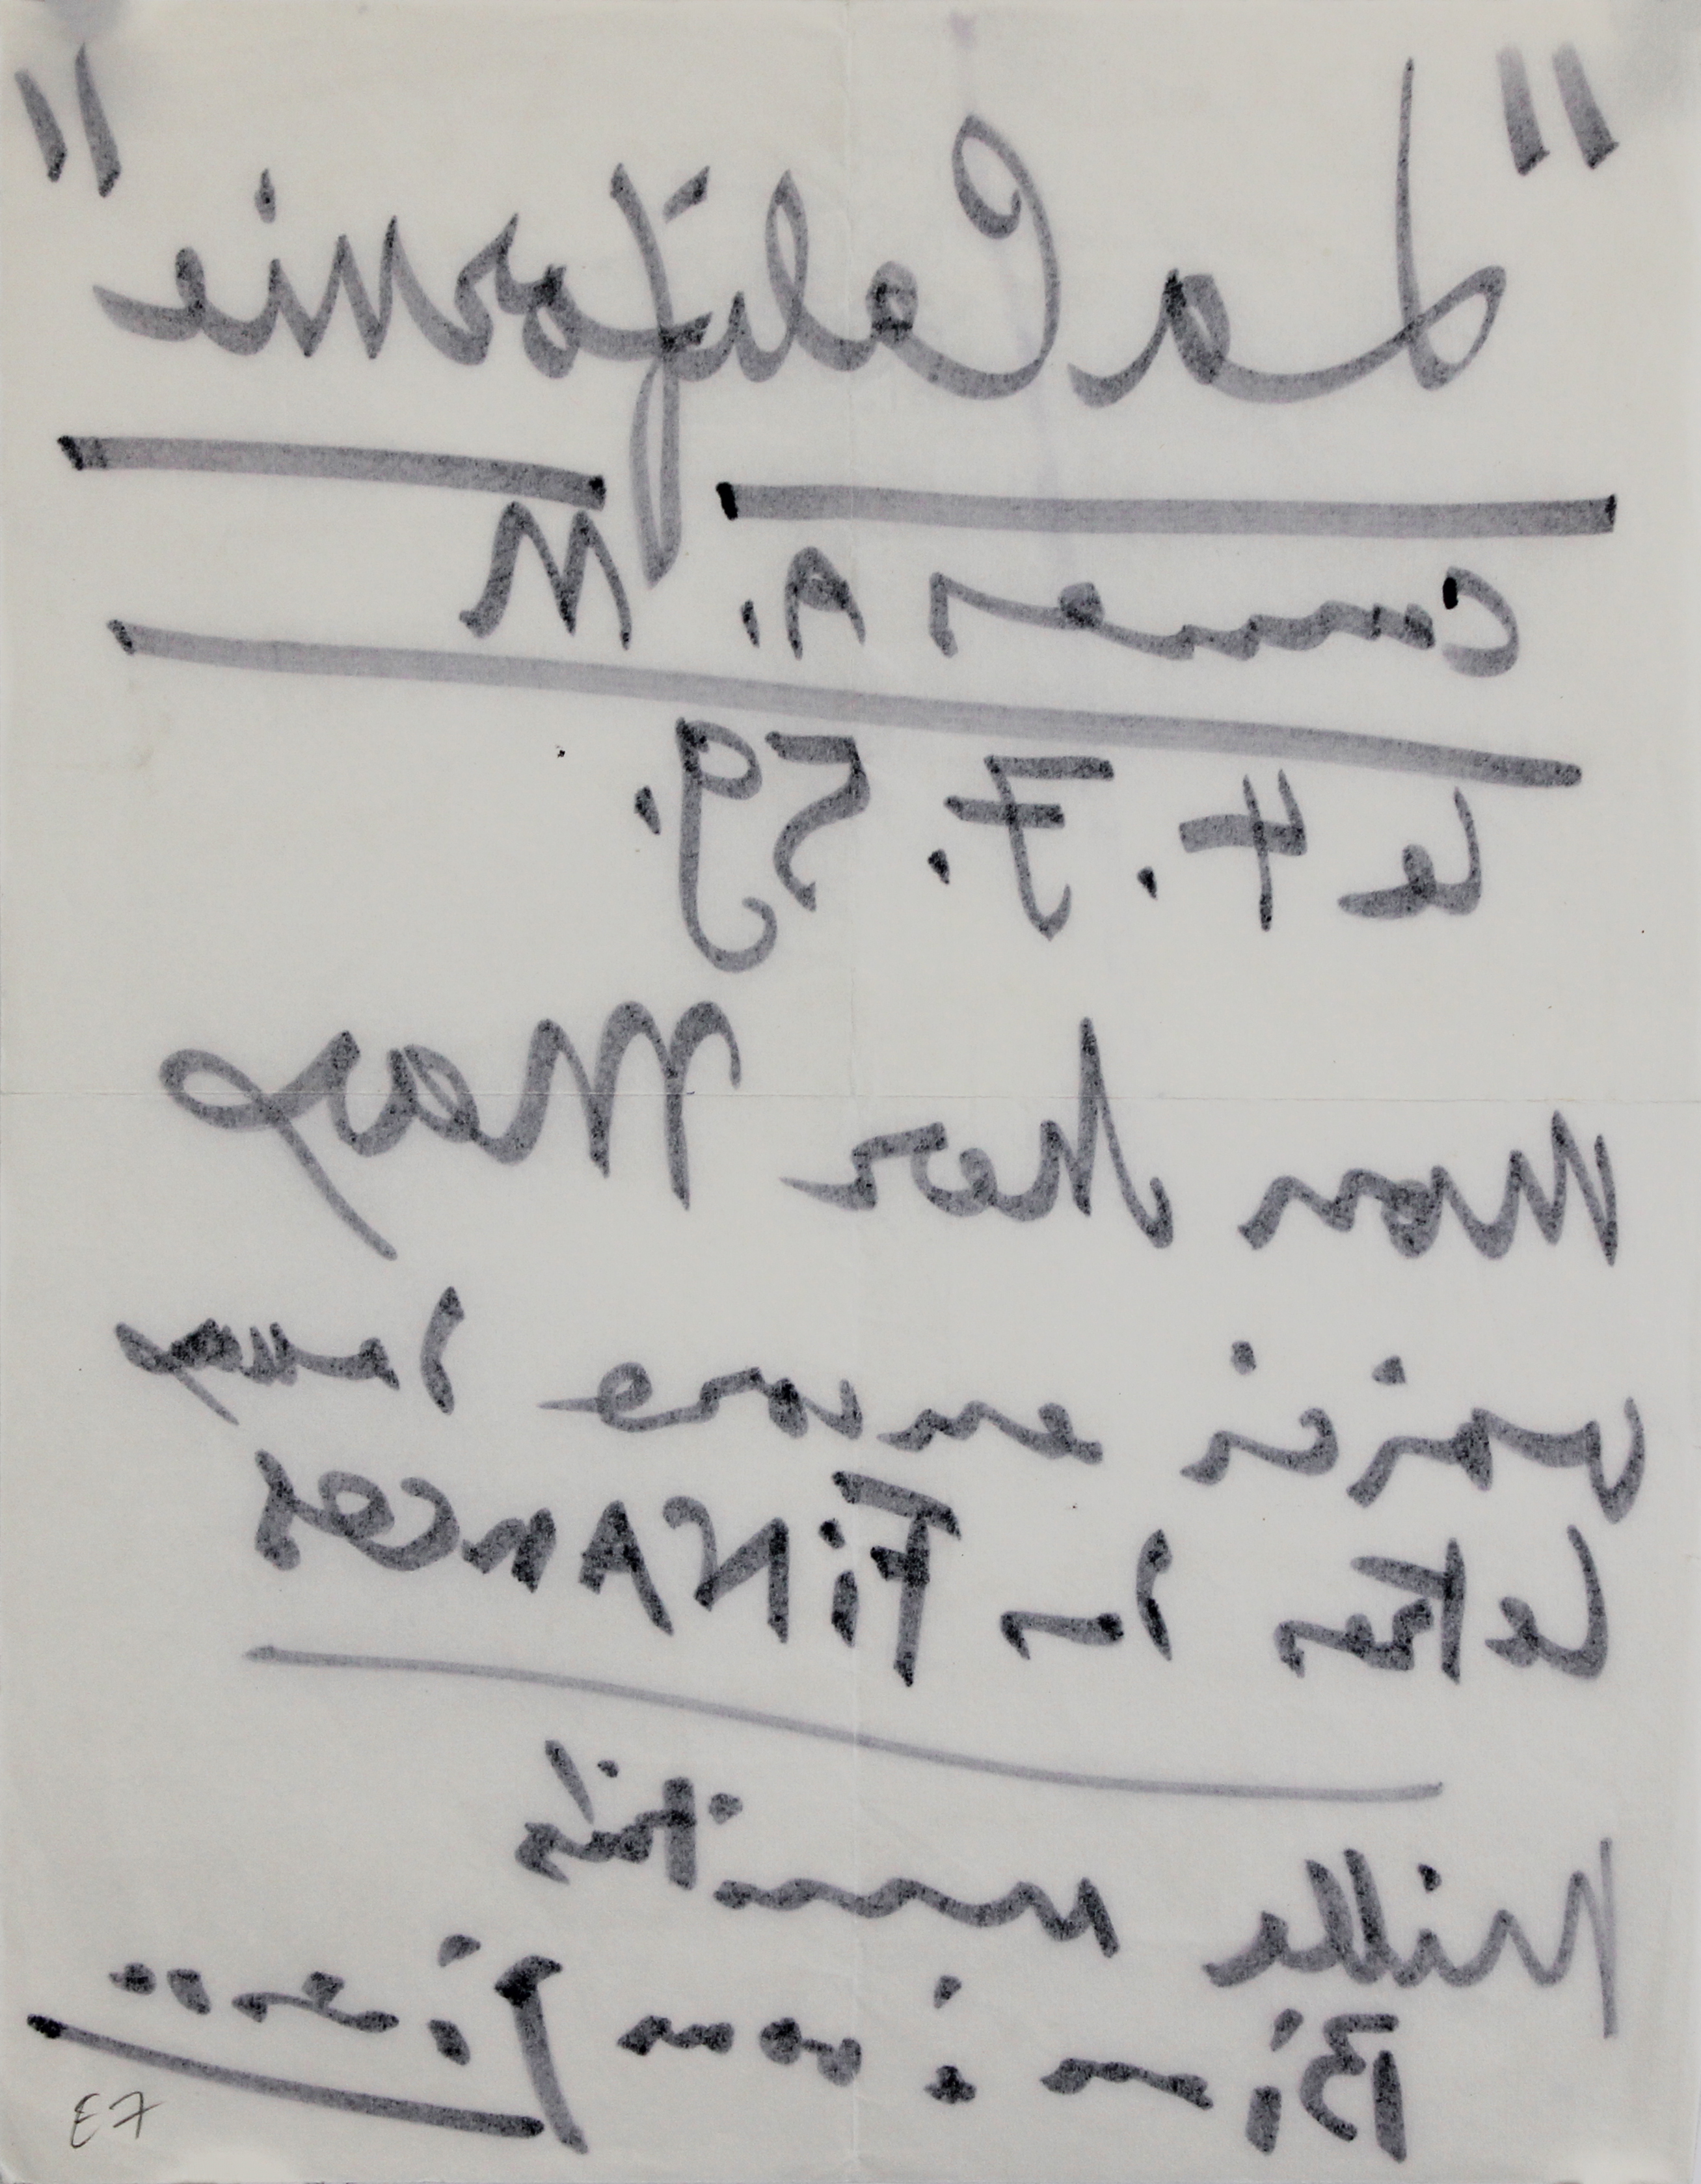 "La Californie"
Cannes A. M
le 4.7.59.
Mon cher Max
voici encore
lettre FINANCES
Mille amitiés
Bien à vous Picasso